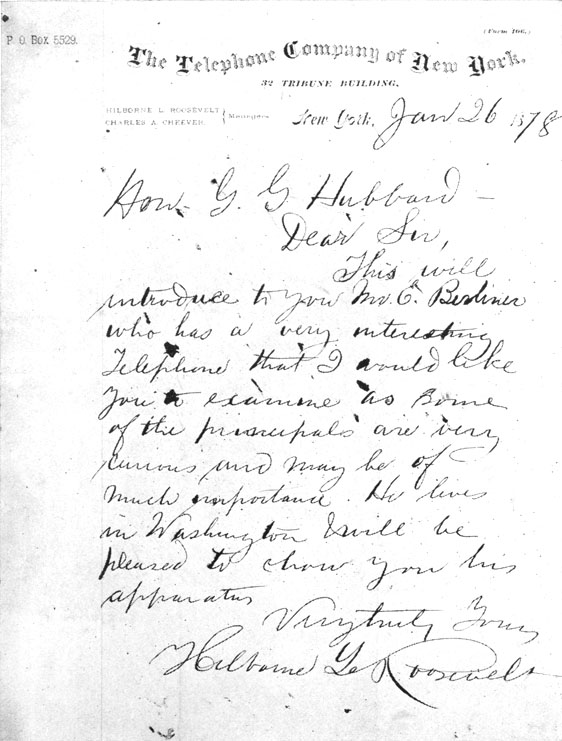 (Form 106.)
P. O. Box 5529.
The Telephone Company of New York.
32 TRIBUNE BUILDING.
HILBORNE L. ROOSEVELT
CHARLES A. CHEEVER. } Managers
New York, Jan 26 1878
Hon. G. G Hubbard –
Dear Sir,
This will
introduce to you Mr. E. Berliner
who has a very interesting
Telephone that I would like
you to examine as some
of the principals are very
curious and may be of
much importance. He lives
in Washington & will be
pleased to show you his
apparatus
Very truly Yours
Hilborne L. Roosevelt